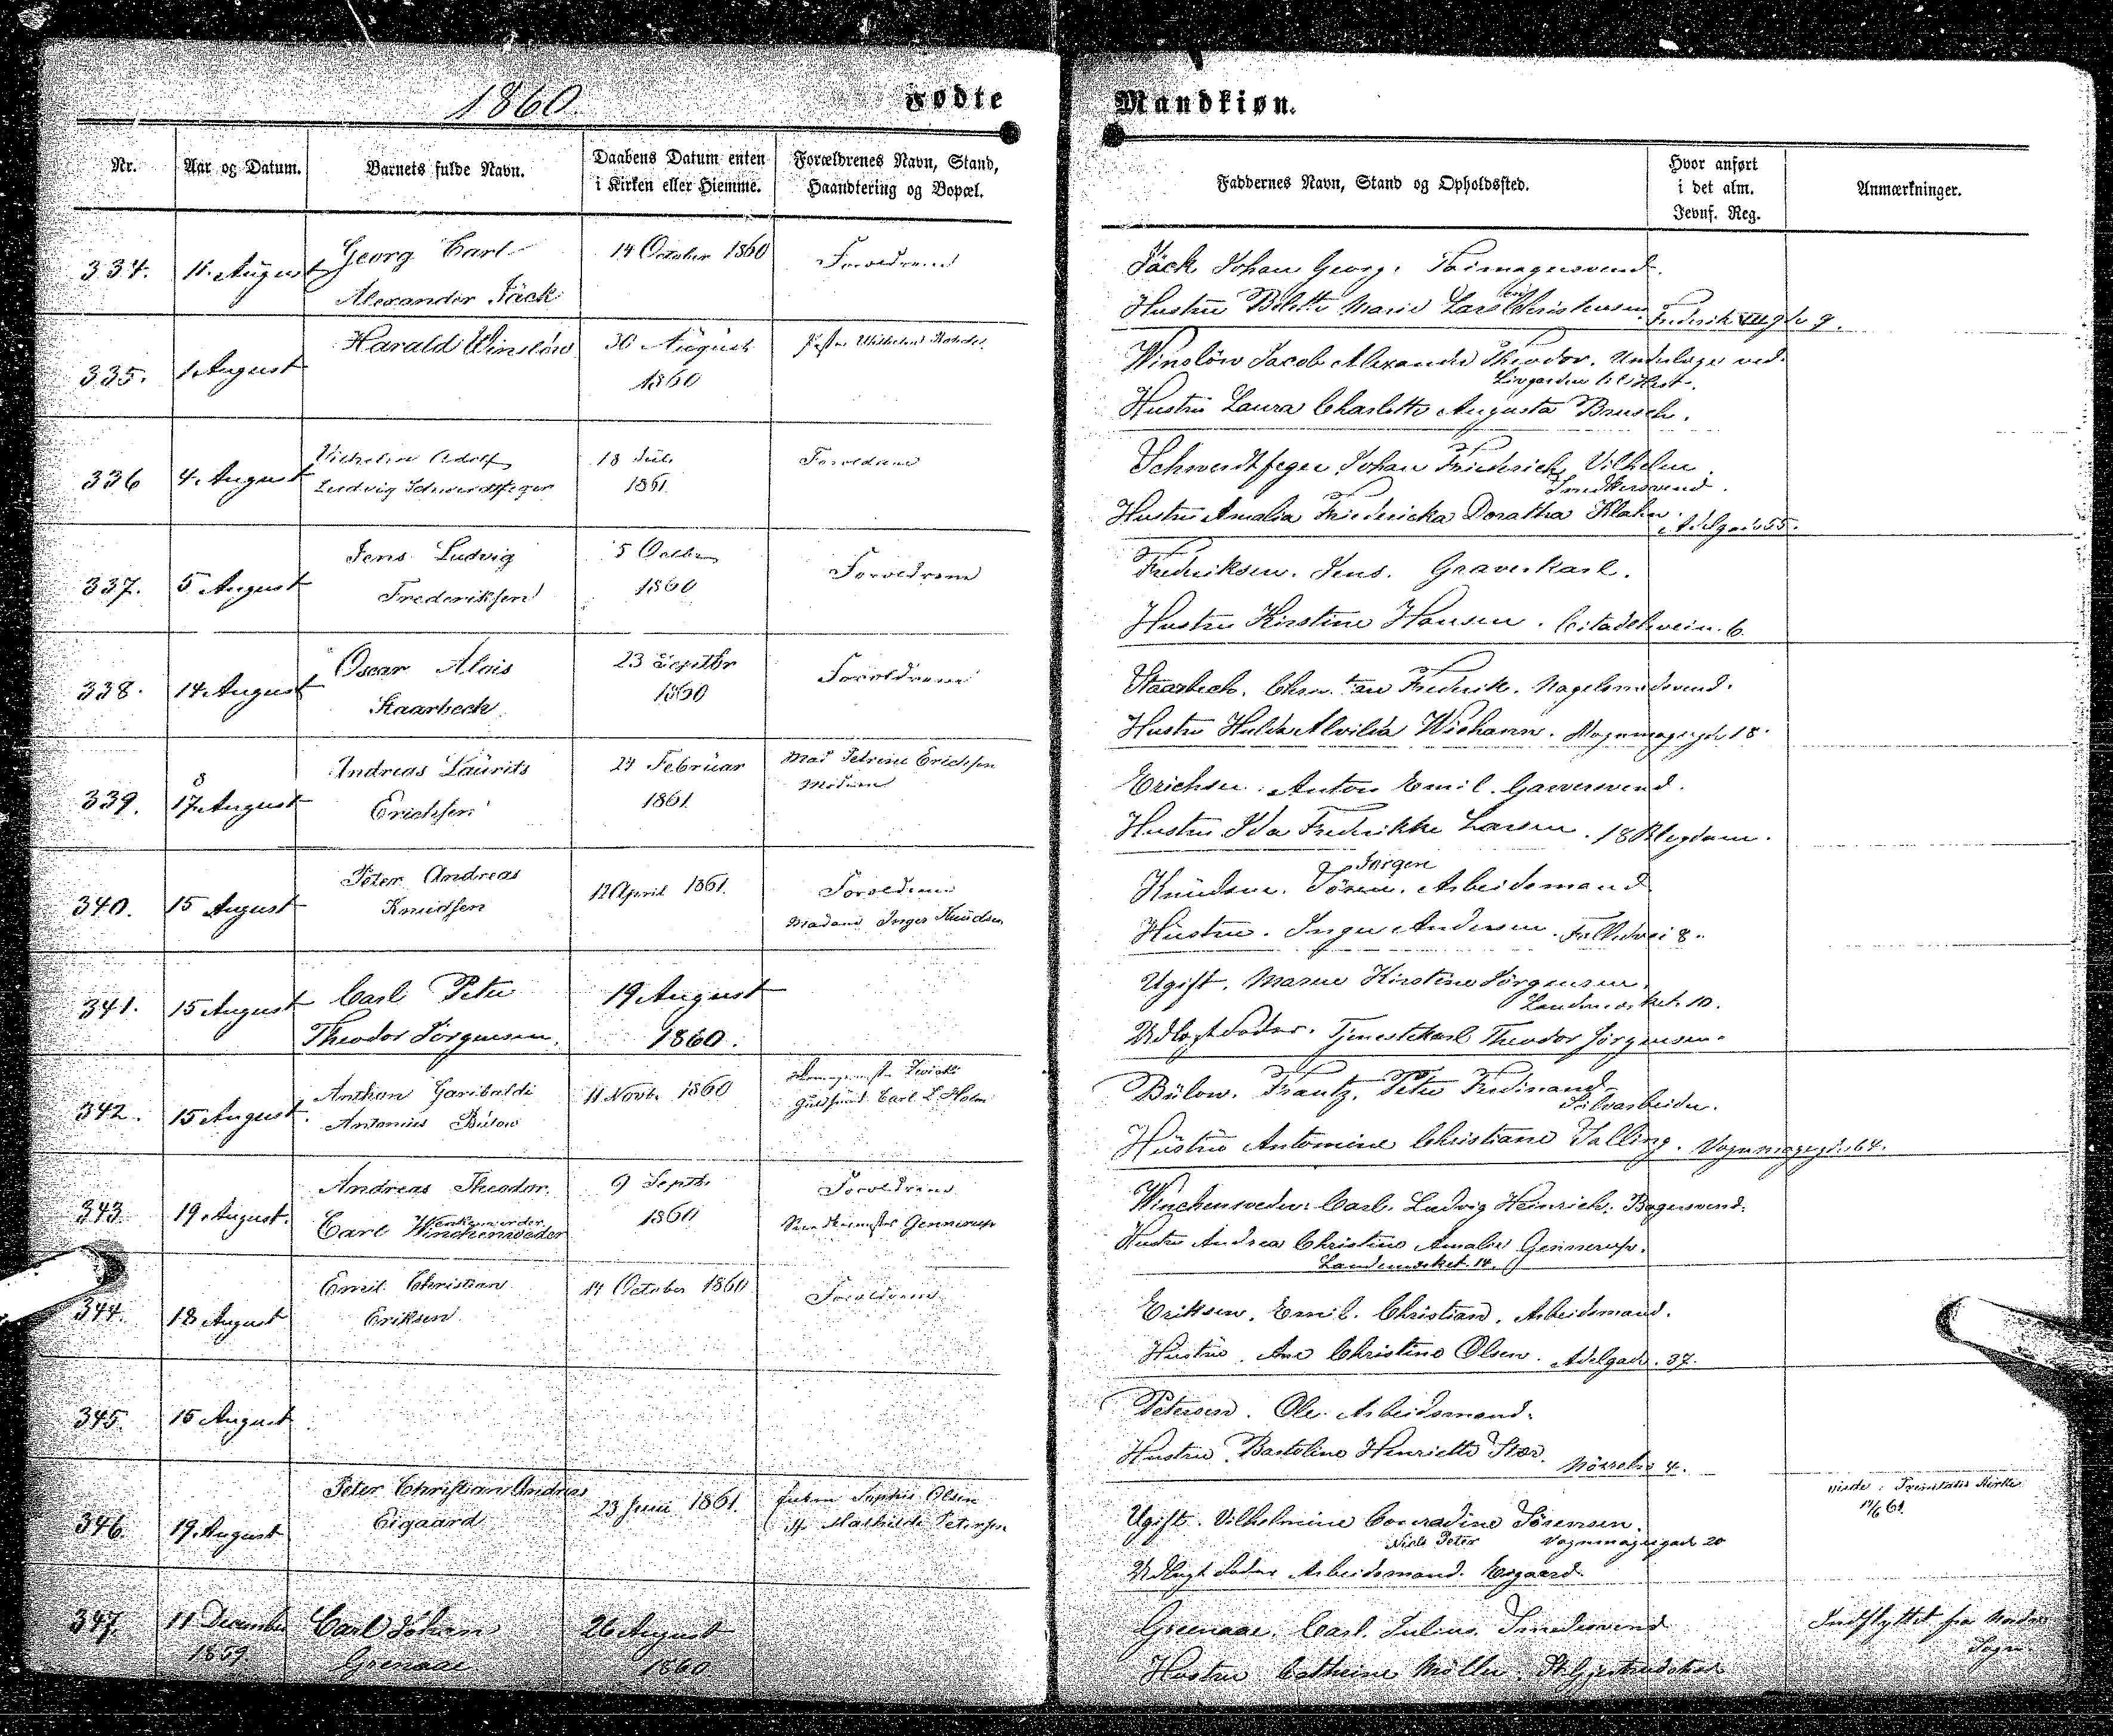 1860.
Fødte
Mandkiøn.
Nr.
Aar og Datum.
Barnets fulde Navn.
Daabens Datum enten
i Kirken eller Hiemme.
Forældrenes Navn, Stand,
Haandtering og Bopæl.
Faddernes Navn, Stand og Opholdssted.
Hvor anført
i det alm.
Jevnf. Reg.
Anmærkninger.
334. 11. August Georg Carl 14 October 1860 Forældrene
Alexander Jäck
Jäck Johan Georg.
Hustru Marie Christensen Frederik VII gde 9.
335. 1. August Harald Winsløw 30 August
1860
Winsløw Jacob Alexander Theodor. Underlæge ved
Livgarden til Hest.
Hustru Laura Charlotte Augusta Brusch.
336 4. August Vilhelm Adolf 18 Juli Forældrene
Ludvig Schwerdtfeger 1861.
Schwerdtfeger Johan Friederich Vilhelm.
Snedkersvend.
Hustru Amalia Friedericka Doratha Klahn. Adelgade 55.
337. 5 August Jens Ludvig 5 Octbr Forældrene
Frederiksen 1860
Frederiksen. Jens. Graverkarl.
Hustru Kirstine Hansen. Citadelsvein. 6
338. 14 August Oscar Alois 23 Septbr Forældrene
Staarbeck 1860
Staarbech. Frederik. Nagelsmedsvend.
Hustru Hulda Alvilda Wichann. Vognmagergde 18.
339. 8
17. August Andreas Laurits 24 Februar Mad Petrine Erichsen
Erichsen 1861.
Erichsen. Anton Emil. Garversvend.
Hustru Ida Frederikke Larsen. 18 Blegdam.
340. 15 August Peter Andreas 12 April 1861. Forældrene
Knudsen Madame Inger Knudsen
Jørgen
Knudsen. Sören. Arbeidsmand
Hustru. Inger Andersen. Falkedvei 8.
341. 15 August Carl Peter 19 August
Theodor Jörgensen. 1860.
Ugift. Maren Kirstine Jörgensen.
Landemærket. 10.
Udlagt Fader. Tjenestekarl Theodor Jörgensen.
342. 15 August. Anthon Garibaldi 11 Novbr 1860
Antonius Bülow Guldsmed Carl L Holm
Bülow. Frantz. Peter Ferdinand
Sölvarbeider.
Hustru Antomine Christiane Salling. Vognmagergd. 64.
343 19. August. Andreas Theodor. 9 Septbr Forældrene
Carl Winchenweder 1860 Gennerup
Winchenweder. Carl. Ludvig Heinrich. Bagersvend.
Hustru Andrea Christine Amalie Gennerup.
Landemærket 14.
344. 18 August Emil Christian 14 October 1860 Forældrene
Eriksen
Eriksen. Emil. Christian. Arbeidsmand.
Hustru. Ane Christine Olsen. Adelgade. 37.
345. 15 August
Petersen. Ole. Arbeidsmand.
Hustru. Bartoline Henriette Stær. Nörrebro 4.
346. 19. August Peter Christian Andreas 23 Juni 1861. Sophie Olsen
Eigaard Mathilde Petersen
Ugift. Vilhelmine Conradine Sörensen.
Niels Peter Vognmagergade 20
Udlagt Fader Arbeidsmand. Esgaard.
Trinitatis Kirke
347. 11 December Carl Johan 26 August
1859. Grenaae 1860
Greenaae. Carl. Julius. Smedesvend
Hustru Cathrine Möller.
Indflyttet fra
Sogn.